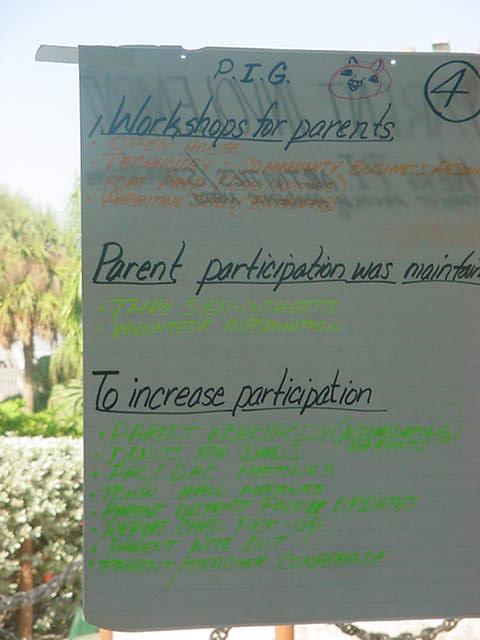 P.I.G.
4
1. Workshops for parents
• OPEN HOUSE
• TECHNOLOGY • COMMUNITY BUSINESS RESOU
• PARENTING SKILLS
Parent participation was maintain
• THRU SIGN-IN SHEETS
• VOLUNTEER INFORMATION
To increase participation
• PARENT WORKSHOPS
• DONUTS FOR DADS
• PAC/DAC MEETINGS
• TOWN HALL MEETINGS
• PARENT DISTRICT POLICY UPDATES
• REPORT CARD PICK-UP
• PARENT NITE OUT
• PARENT/TEACHER CONFERENCE